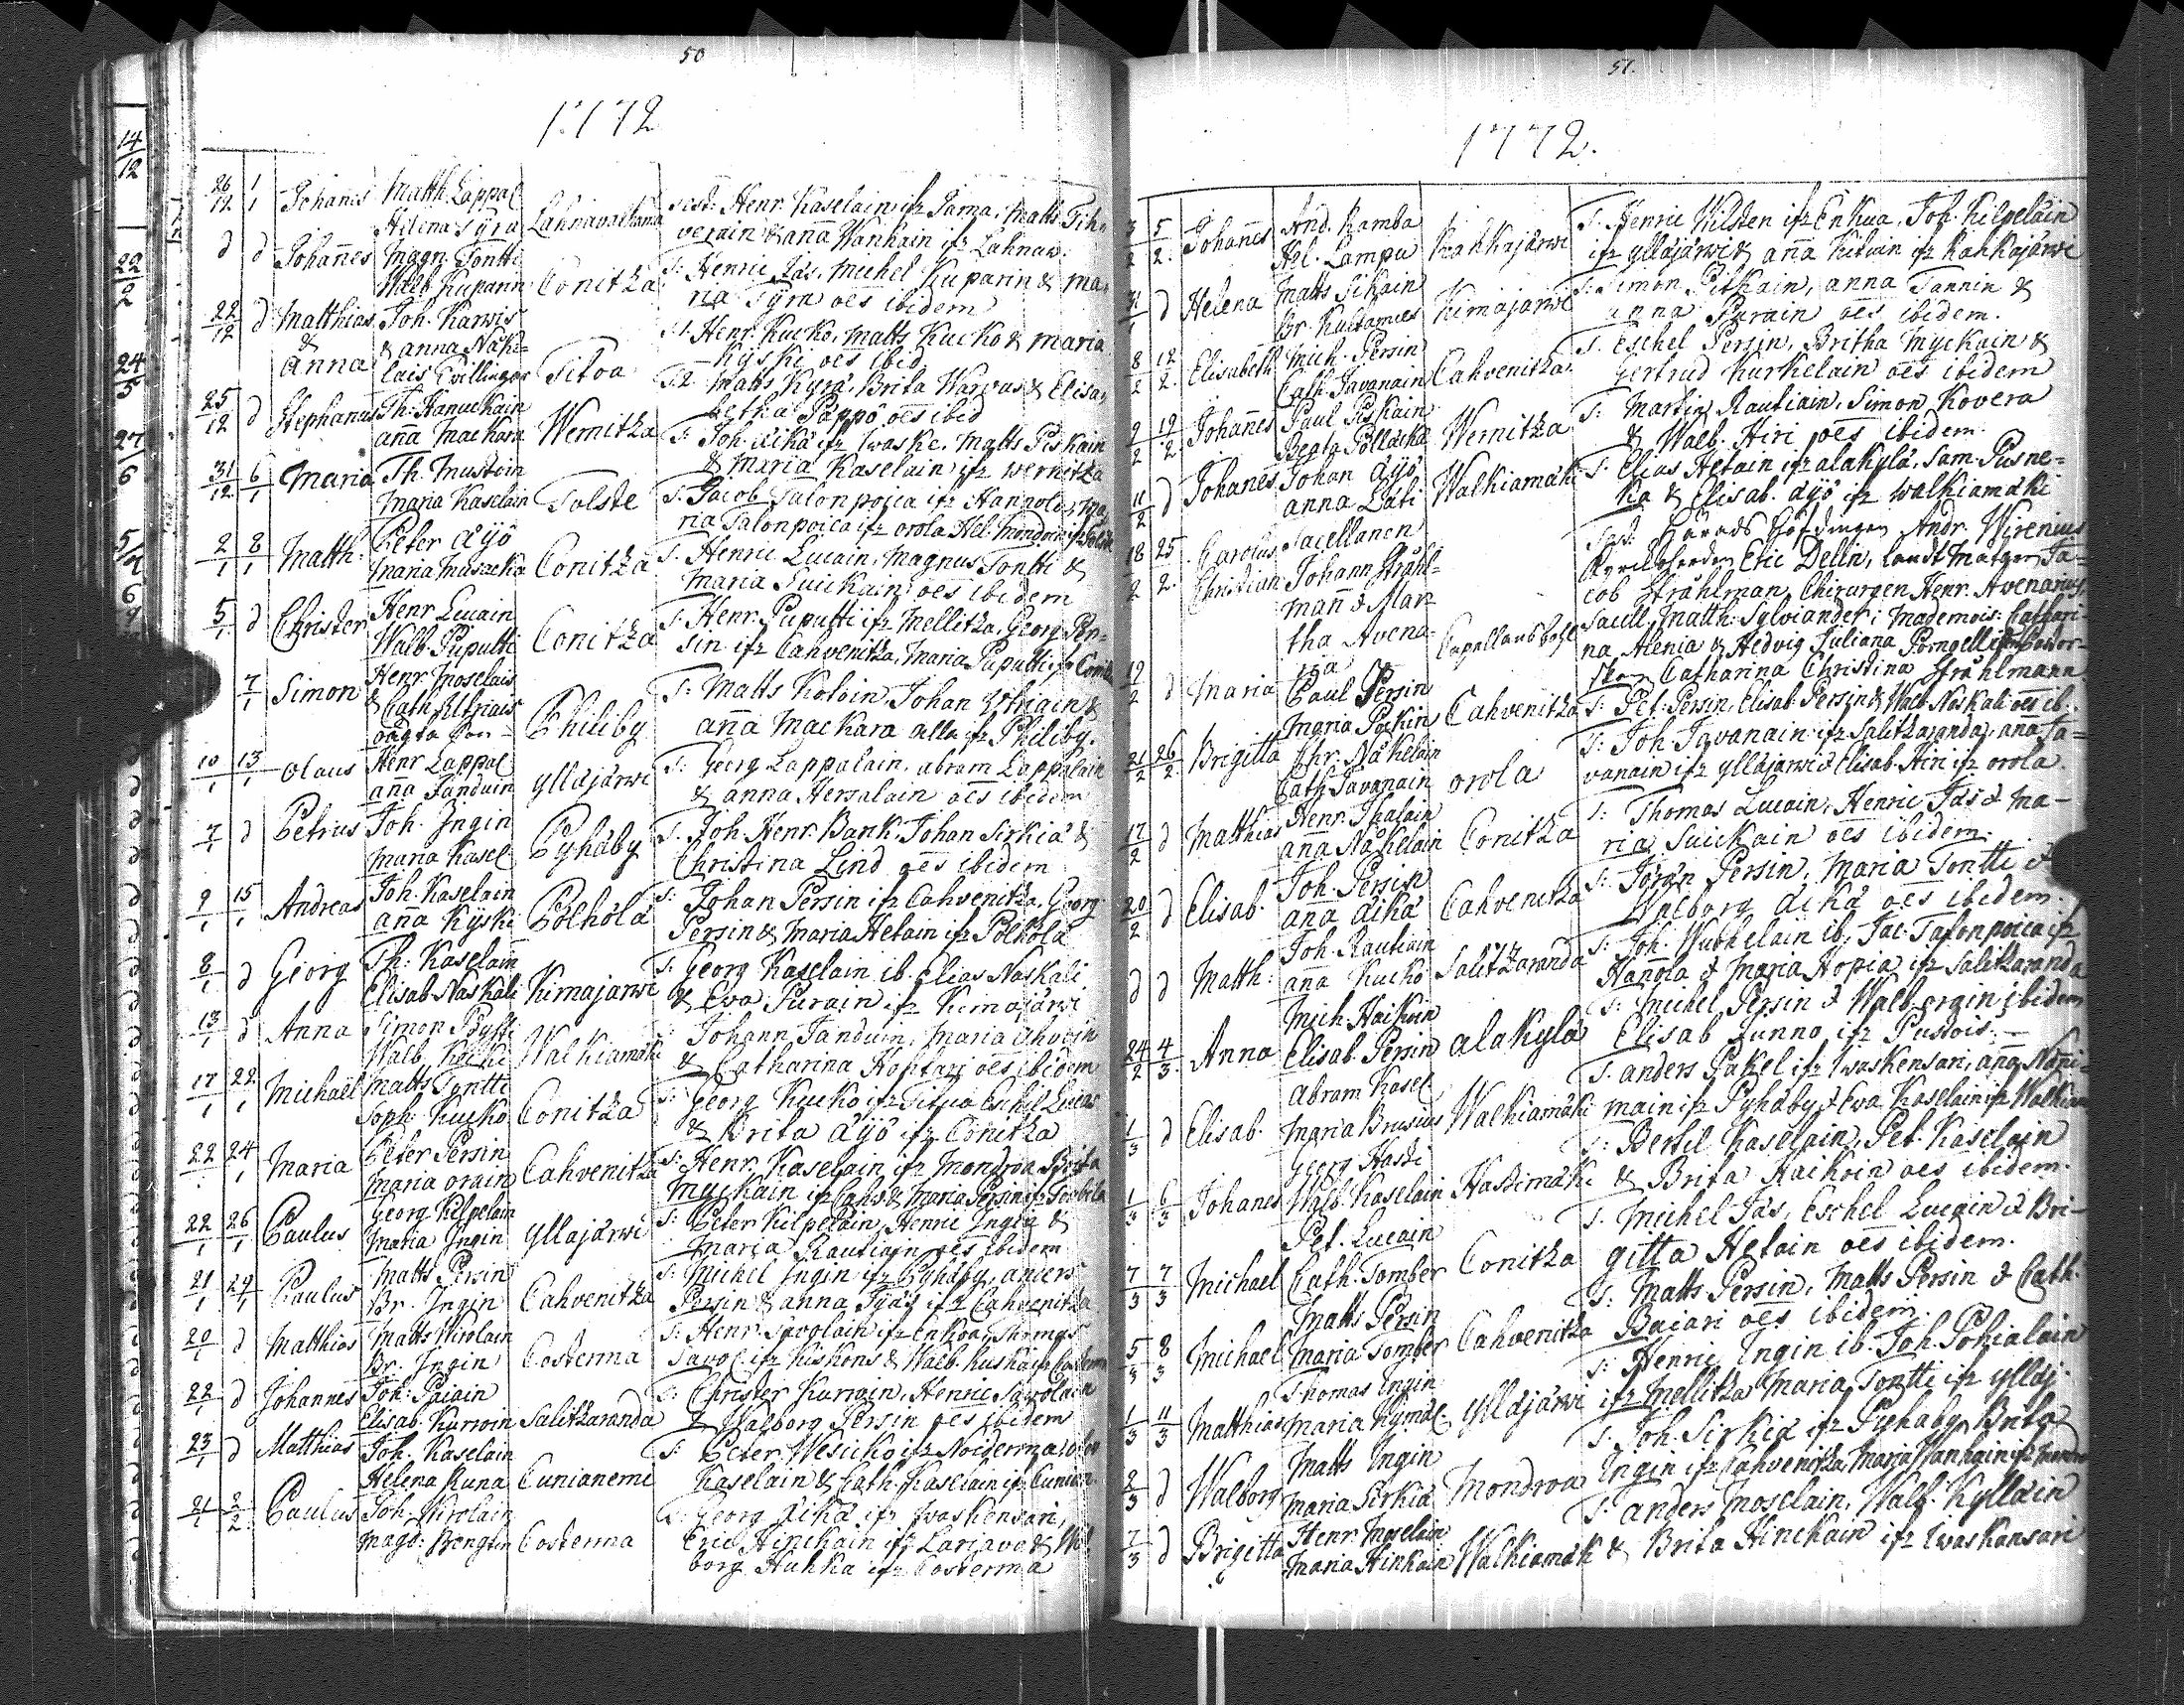 50
1772
26/12 1/1 Johanes Matth. Lappal
Hilena Tyra Lahnavaltana
test: Henr. Kaselain ifr Parna, Matts Tih-
verain & anna Wanhain ifr Lahnaw.
d d Johannes Magn. Tontti
Walb. Kuparin Conitza
T: Henric Jäs, Michel Kuparin & Ma-
ria Tyra oes ibidem
22/12 d Matthias Joh. Karwis
& & anna Näke-
Anna lais Tvillingar Titoa
T1. Henr. Kucko, Matts Kucko & Maria
Kyski oes ibid
T2. Matts Kyrä, Brita Warvas & Elisa-
betha Pappo oes ibid
25/12 d Stephanus Th. Hanuckain
anna Mackara Wernitza
T: Joh. Äikä ifr Iwaske, Matts Piskain
& Maria Kaselain ifr Wernitza
31/12 6/1 Maria Th. Mustoin
Maria Kaselain Tolste
T: Jacob Talonpoica ifr Hannola, Ma-
ria Talonpoica ifr orola Hel. Mondoin ifr Tolste
2/1 8/1 Matth: Peter Äyö
Maria Musacka Conitza
T: Henric Lucain, Magnus Tontti &
Maria Suickain oes ibidem
5/1 d Christer Henr Lucain
Walb. Puputti Conitza
T: Henr. Puputti ifr Mellitza, Georg Per-
sin ifr Cahvenitza, Maria Puputti ifr Conitza
7/1 Simon Henr Moselais
& Cath. Uhriais
oägta Son Philiby
T: Matts Koloin, Johan Uhriain &
anna Mackara alla ifr Philiby.
10/1 13/1 Olaus Henr Lappal
anna Janduin yllajärwi
T: Georg Lappalain, abram Lappalain
& anna Hersalain oes ibidem
7/1 d Petrus Joh. Ingin
Maria Kasel Pyhäby
T: Joh. Henr. Bank, Johan Sirkiä &
Christina Lind oes ibidem
9/1 15/1 Andreas Joh. Kaselain
anna Kyski Pölhölä
T: Johan Persin ifr Cahvenitza, Georg
Persin & Maria Hetain ifr Pölhölä
8/1 d Georg Th: Kaselain
Elisab Naskali Kimajarwi
T: Georg Kaselain ib. Elias Naskali
& Ewa Purain ifr Kimajärwi
13/1 d Anna Simon Pdyssi
Walb. Keike Walkiamäki
Johann Janduin, Maria Ahvoin
& Catharina Hostari oes ibidem
17/1 22/1 Michael Matts Tontti
Soph. Kucko Conitza
T: Georg Kucko ifr Titua Eschil Lucas
& Brita Äyö ifr Conitza
22/1 24/1 Maria Peter Persin
Maria orain Cahvenitza
T: Henr. Kaselain ifr Mondroa Brita
Myckain ifr Cahv & Maria Persin ifr
22/1 26/1 Paulus Georg Kilpelain
Maria Ingin yllajärwi
T: Peter Kilpelain, Henric Ingin &
Maria Rautiain oes ibidem
21/1 29/1 Paulus Matts Persin
Br. Ingin Cahvenitza
T: Michel Ingin ifr Pyhäby, anders
Persin & anna Tyäs ifr Cahvenitza
20/1 d Matthias Matts Wirolain
Br. Ingin Costerma
T: Henr. Savolain ifr Enkua, Thomas
Savol. ifr Kiskons & Walb. Kuskä ifr Costerm
22/1 d Johannes Joh: Paiain
Elisab. Kurwoin Salitzaranda
T: Christer Kurwoin, Henric Sawolain
& Walborg Persin oes ibidem
23/1 d Matthias Joh. Kaselain
Helena Kuna Cunianemi
T: Peter Wesicko ifr Noiderma
Kaselain & Cath. Kaselain ifr Cunian
21/1 2/2 Paulus Joh. Wirolain
Magd: Bengten Costerma
T: Georg Äikä ifr Iwaskensari,
Eric Hinckain ifr Lariava & Wal
borg Huhka ifr Costerma
51.
1772.
3/2 5/2. Johannes And. Ramba
Hel. Lampu Kahkajärwi
T: Henric Wilsten ifr Enkua, Joh. Kilpeläin
ifr yllajärwi & anna Kukain ifr Kahkajärwi
31/1 d Helena Matts Sikain
Br. Kultamies Kimajarwi
T: Simon Pitkain, anna Tannin &
anna Purain oes ibidem.
8/2 12/2. Elisabeth Mich. Persin
Cath. Tavanain Cahvenitza
T. Eschel Persin, Britha Myckain &
Gertrud Kurkelain oes ibidem
9/2 12/2 Johannes Paul Piskain
Beata Pölläckä Wernitza
T: Martin Rautiain, Simon Kovera
& Walb. Hiri oes ibidem.
11/2 d Johanes Johan Äyö
anna Läti Walkiamäki
T: Elias Hetain ifr alakylä, Sam. Pusne-
ka & Elisab. äyö ifr Walkiamäki
18/2 25/2. Carolus Sacellanen
Christian Johann Stråhl-
man & Mar-
tha Avena-
ria Capellans bohl
Test: Härads Höfdingen Andr. Wirenius
Kyrckoherden Eric Dellin, Landtmätaren Ja-
cob Stråhlman, Chirurgen Henr. Avenarius,
Sacell. Matth: Sylviander; Mademois: Cathari-
na Alenia & Hedvig Juliana
Catharina Christina Stråhlmann
19/2 d Maria Paul Persin
Maria Pockin Cahvenitza
T: Pet: Persin, Elisab. Persin & Walb. Naskali oes ib.
21/2 26/2 Brigitta Chr. Näkelain
Cath Tavanain orola
T: Joh. Tavanain ifr Salitzaranda, anna Ta-
vanain ifr yllajarwi & Elisab. Hiri ifr orola
17/2 d Matthias Henr. Ihalain
ana Näkelain Conitza
T: Thomas Lucain, Henric Jäs & Ma-
ria Suickain oes ibidem.
20/2 d Elisab. Joh. Persin
ana Äikä Cahvenitza
T: Jörän Persin, Maria Tontti &
Walborg Äikä oes ibidem.
d d Matth: Joh. Rautiain
anna Kucko Salitzaranda
T: Joh. Wubhelain ib. Jac. Talonpoica ifr
Hanola & Maria Hopia ifr Salitzaranda
24/2 4/3. Anna Mich. Haikoin
Elisab. Persin alakylä
T: Michel Persin & Walb. orgin ibidem
Elisab Junno ifr Pustois.
1/3 d Elisab. Abram Kasel.
Maria Brusius Walkiamäki
T. anders Pakel ifr Iwaskensari, anna Nani-
main ifr Pyhäby & Ewa Kaselain ifr Walkiam
1/3 6/3 Johanes Georg Hasti
Walb. Kaselain Hastimäki
T: Bertil Kaselain, Pet. Kaselain
& Brita Haikoin oes ibidem.
7/3 7/3 Michael Pet. Lucain
Cath. Tomber Conitza
T. Michel Jäs, Eschel Lucain & Bri-
gitta Hetain oes ibidem.
5/3 8/3 Michael Matts Persin
Maria Tomber Cahvenitza
T: Matts Persin, Matts Persin & Cath.
Baian oes ibidem.
1/3 11/3 Matthias Thomas Ingin
Maria Kymäl. Ylläjärwi
T: Henric Ingin ib. Joh. Pohialain
ifr Mellitza Maria Tontti ifr ylläj.
2/3 d Walborg Matts Ingin
Maria Sirkiä Mondroa
T. Joh. Sirkiä ifr Pyhaby Brita
Ingin ifr Cahvenitza Maria Wanhain ifr
7/3 d Brigitta Henr. Moselain
Maria Hinkain Walkiamäk
T. anders Moselain, Walb. Kylläin
& Brita Hinckain ifr Iwaskansari